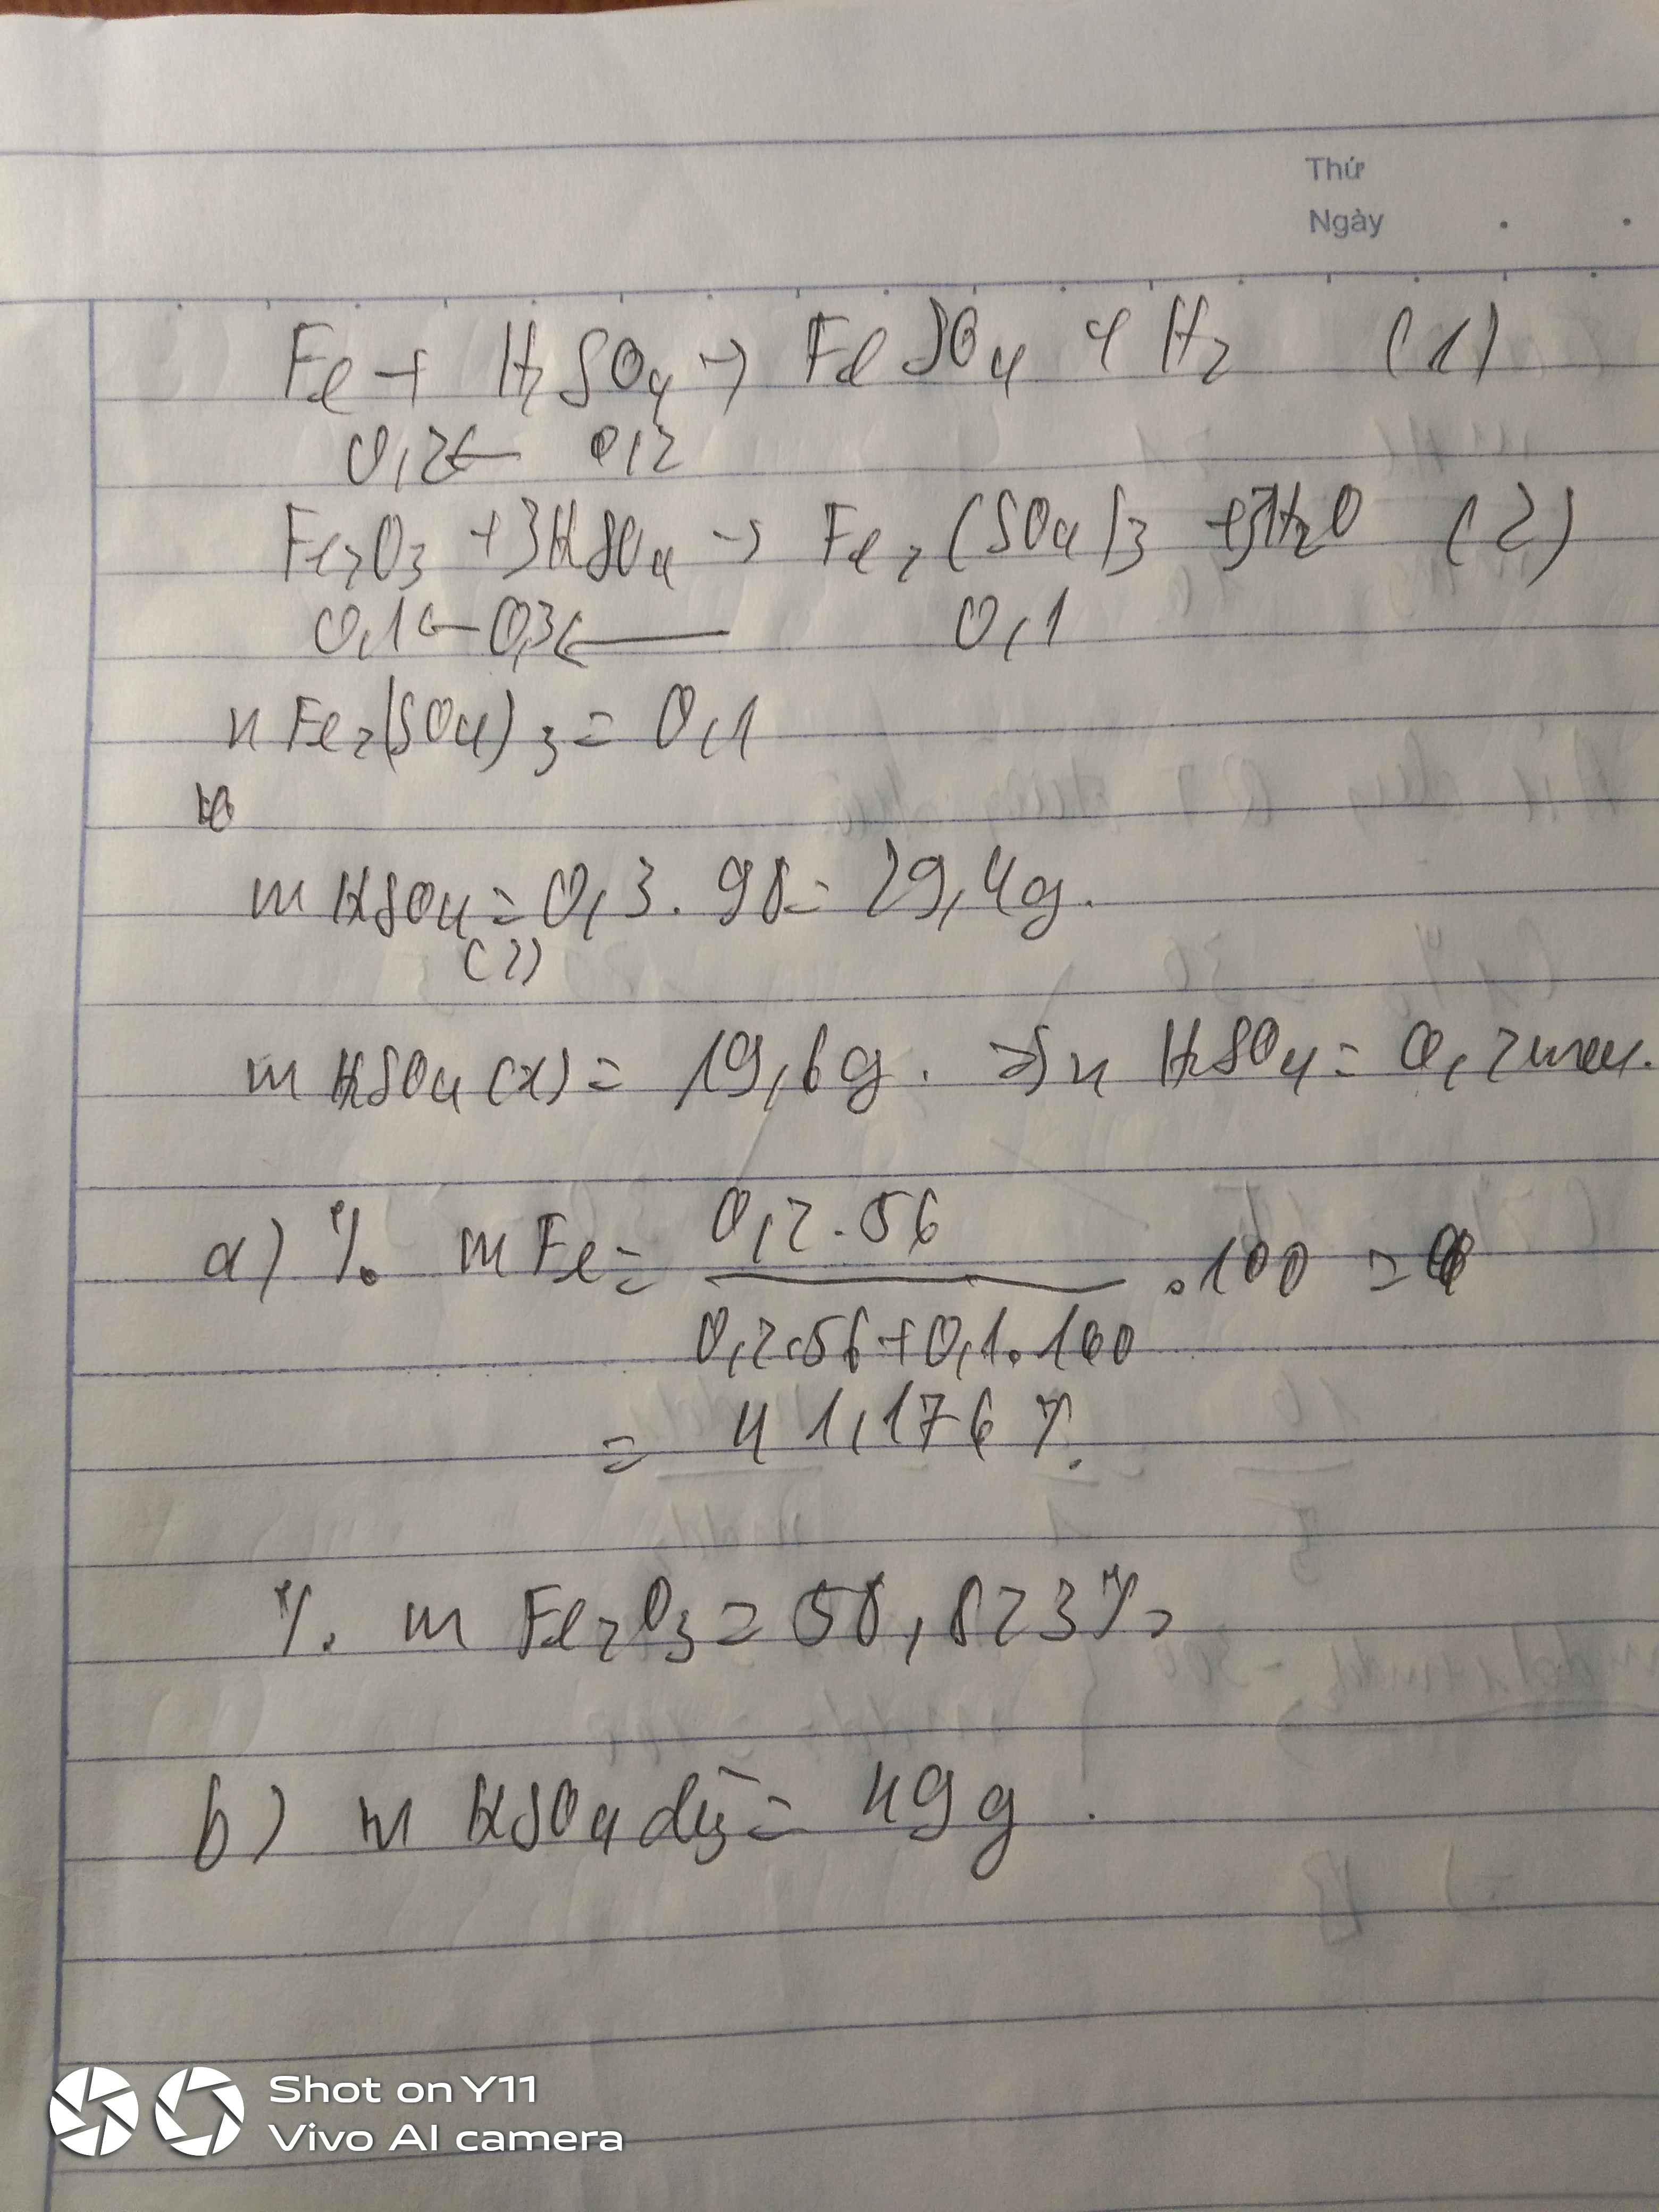 Thứ
Ngày
Fe + H2SO4 → FeSO4 + H2 (1)
0,2 ← 0,2
Fe2O3 + 3H2SO4 → Fe2(SO4)3 + 3H2O (2)
0,1 ← 0,3 ← 0,1
nFe2(SO4)3 = 0,1
mH2SO4 = 0,3 . 98 = 29,4g.
(2)
mH2SO4(1) = 19,6g. => nH2SO4 = 0,2
a) % mFe = 0,2.56
.100 =
0,2.56 + 0,1.160
= 41,176 %
% m Fe2O3 = 58,823%
b) m H2SO4 = 49g.
Shot on Y11
Vivo AI camera